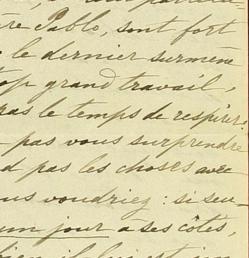 Pablo, sont fort
le dernier surmené
grand travail,
pas le temps de respirer.
pas vous surprendre
pas les choses avec
voudriez : si seu-
un jour a ses côtés,